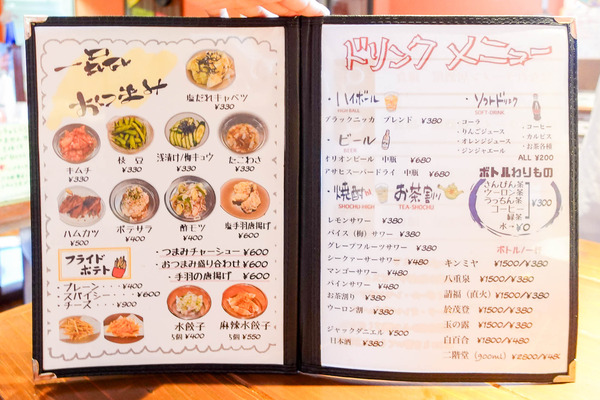 一品
おつまみ
塩だれキャベツ
¥330
キムチ
¥330
枝豆
¥330
浅漬け/梅キュウ
¥330
たこわさ
¥330
ハムカツ
¥500
ポテサラ
¥400
酢モツ
¥400
塩手羽唐揚げ
¥600
フライド
ポテト
・プレーン・・・¥400
・スパイシー・・・¥600
・チーズ・・・¥900
・つまみチャーシュー ¥600
・おつまみ盛り合わせ ¥600
・手羽の唐揚げ ¥600
水餃子
5個 ¥400
麻辣水餃子
5個 ¥550
ドリンクメニュー
・ハイボール
HIGHBALL
ブラックニッカ ブレンド ¥380
・ビール
BEER
オリオンビール 中瓶 ¥680
アサヒスーパードライ 中瓶 ¥680
焼酎
SHOCHU-HIGH
お茶割り
TEA-SHOCHU
レモンサワー ¥380
バイス(梅)サワー ¥380
グレープフルーツサワー ¥380
シークァーサーサワー ¥480
マンゴーサワー ¥480
パインサワー ¥480
お茶割り ¥380
ウーロン割 ¥380
ジャックダニエル ¥500
日本酒 ¥380
・ソフトドリンク
SOFT-DRINK
・コーラ
・りんごジュース
・オレンジジュース
・ジンジャエール
・コーヒー
・カルピス
・お茶各種
ALL ¥200
ボトルわりもの
さんぴん茶
ウーロン茶
うっちん茶
コーヒー
緑茶
¥300
水→¥0
キンミヤ ¥1500/¥380
八重泉 ¥1500/¥380
請福(直火) ¥1500/¥380
於茂登 ¥1500/¥380
玉の露 ¥1500/¥380
白百合 ¥1800/¥480
二階堂(900ml) ¥2500/¥480